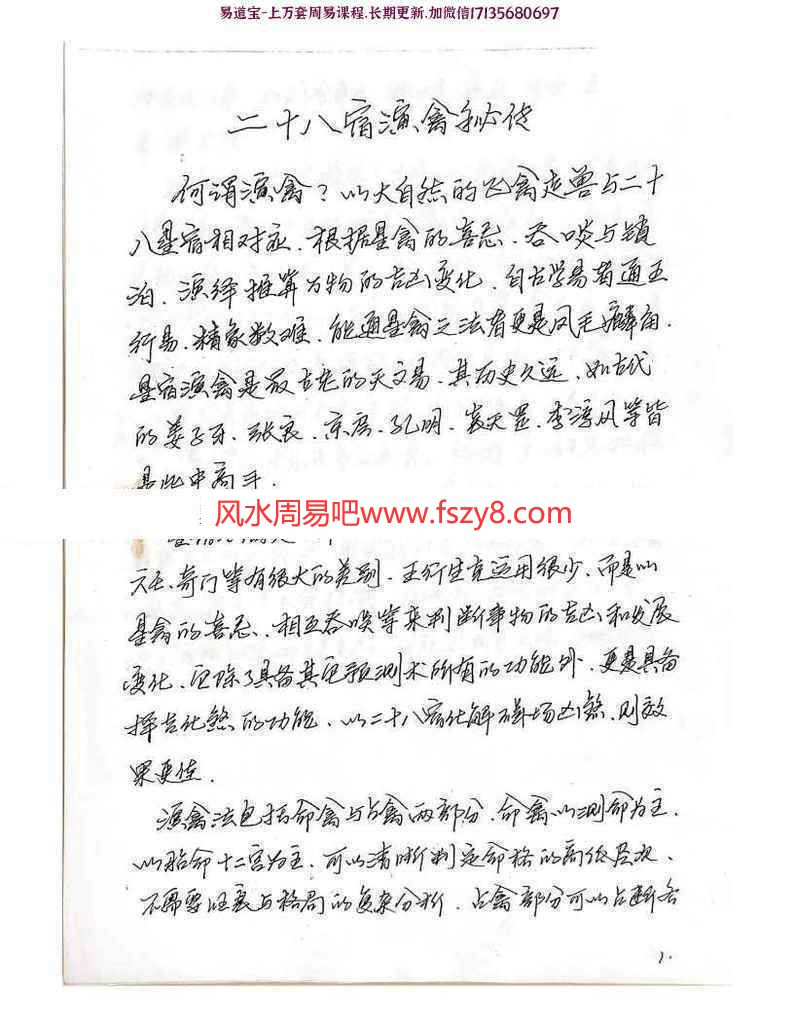 易道宝-上万套周易课程.长期更新.加微信17135680697
二十八宿演禽秘传
何谓演禽？以大自然的飞禽走兽与二十
八星宿相对应．根据星禽的喜忌．吞啖与镇
泊．演绎推算万物的吉凶变化．自古学易者通五
行易．精象数难．能通星禽之法者更是凤毛麟角．
星宿演禽是最古老的天文易．其历史久远．如古代
的姜子牙．张良．京房．孔明．袁天罡．李淳风等皆
是此中高手．
风水周易吧www.fszy8.com
六壬．奇门等有很大的差别．五行生克运用很少．而是以
星禽的喜忌．相互吞啖等来判断事物的吉凶和发展
变化．它除了具备其它预测术所有的功能外．更是具备
择吉化煞的功能．以二十八宿化解磁场凶煞．则效
果更佳．
演禽法包括命禽与占禽两部分．命禽以测命为主．
以胎命十二宫为主．可以清晰判定命格的高低层次．
不需要旺衰与格局的复杂分析．占禽部分可以占断各
1.